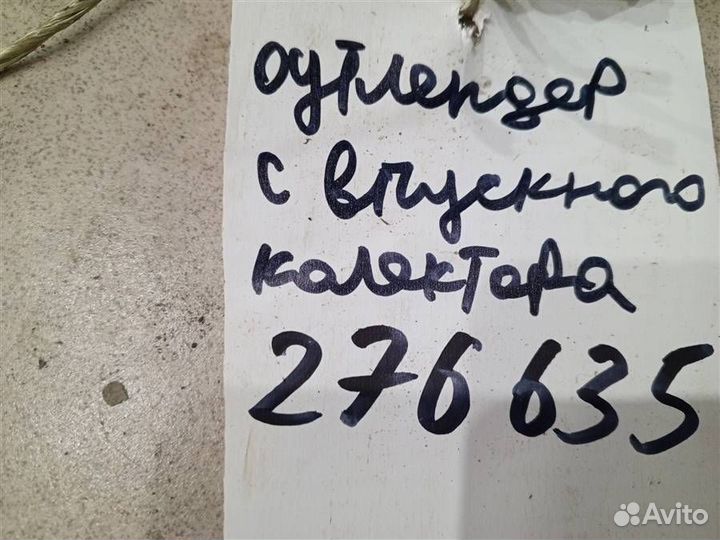 оутлендер
с впускного
колектора
276635
Avito